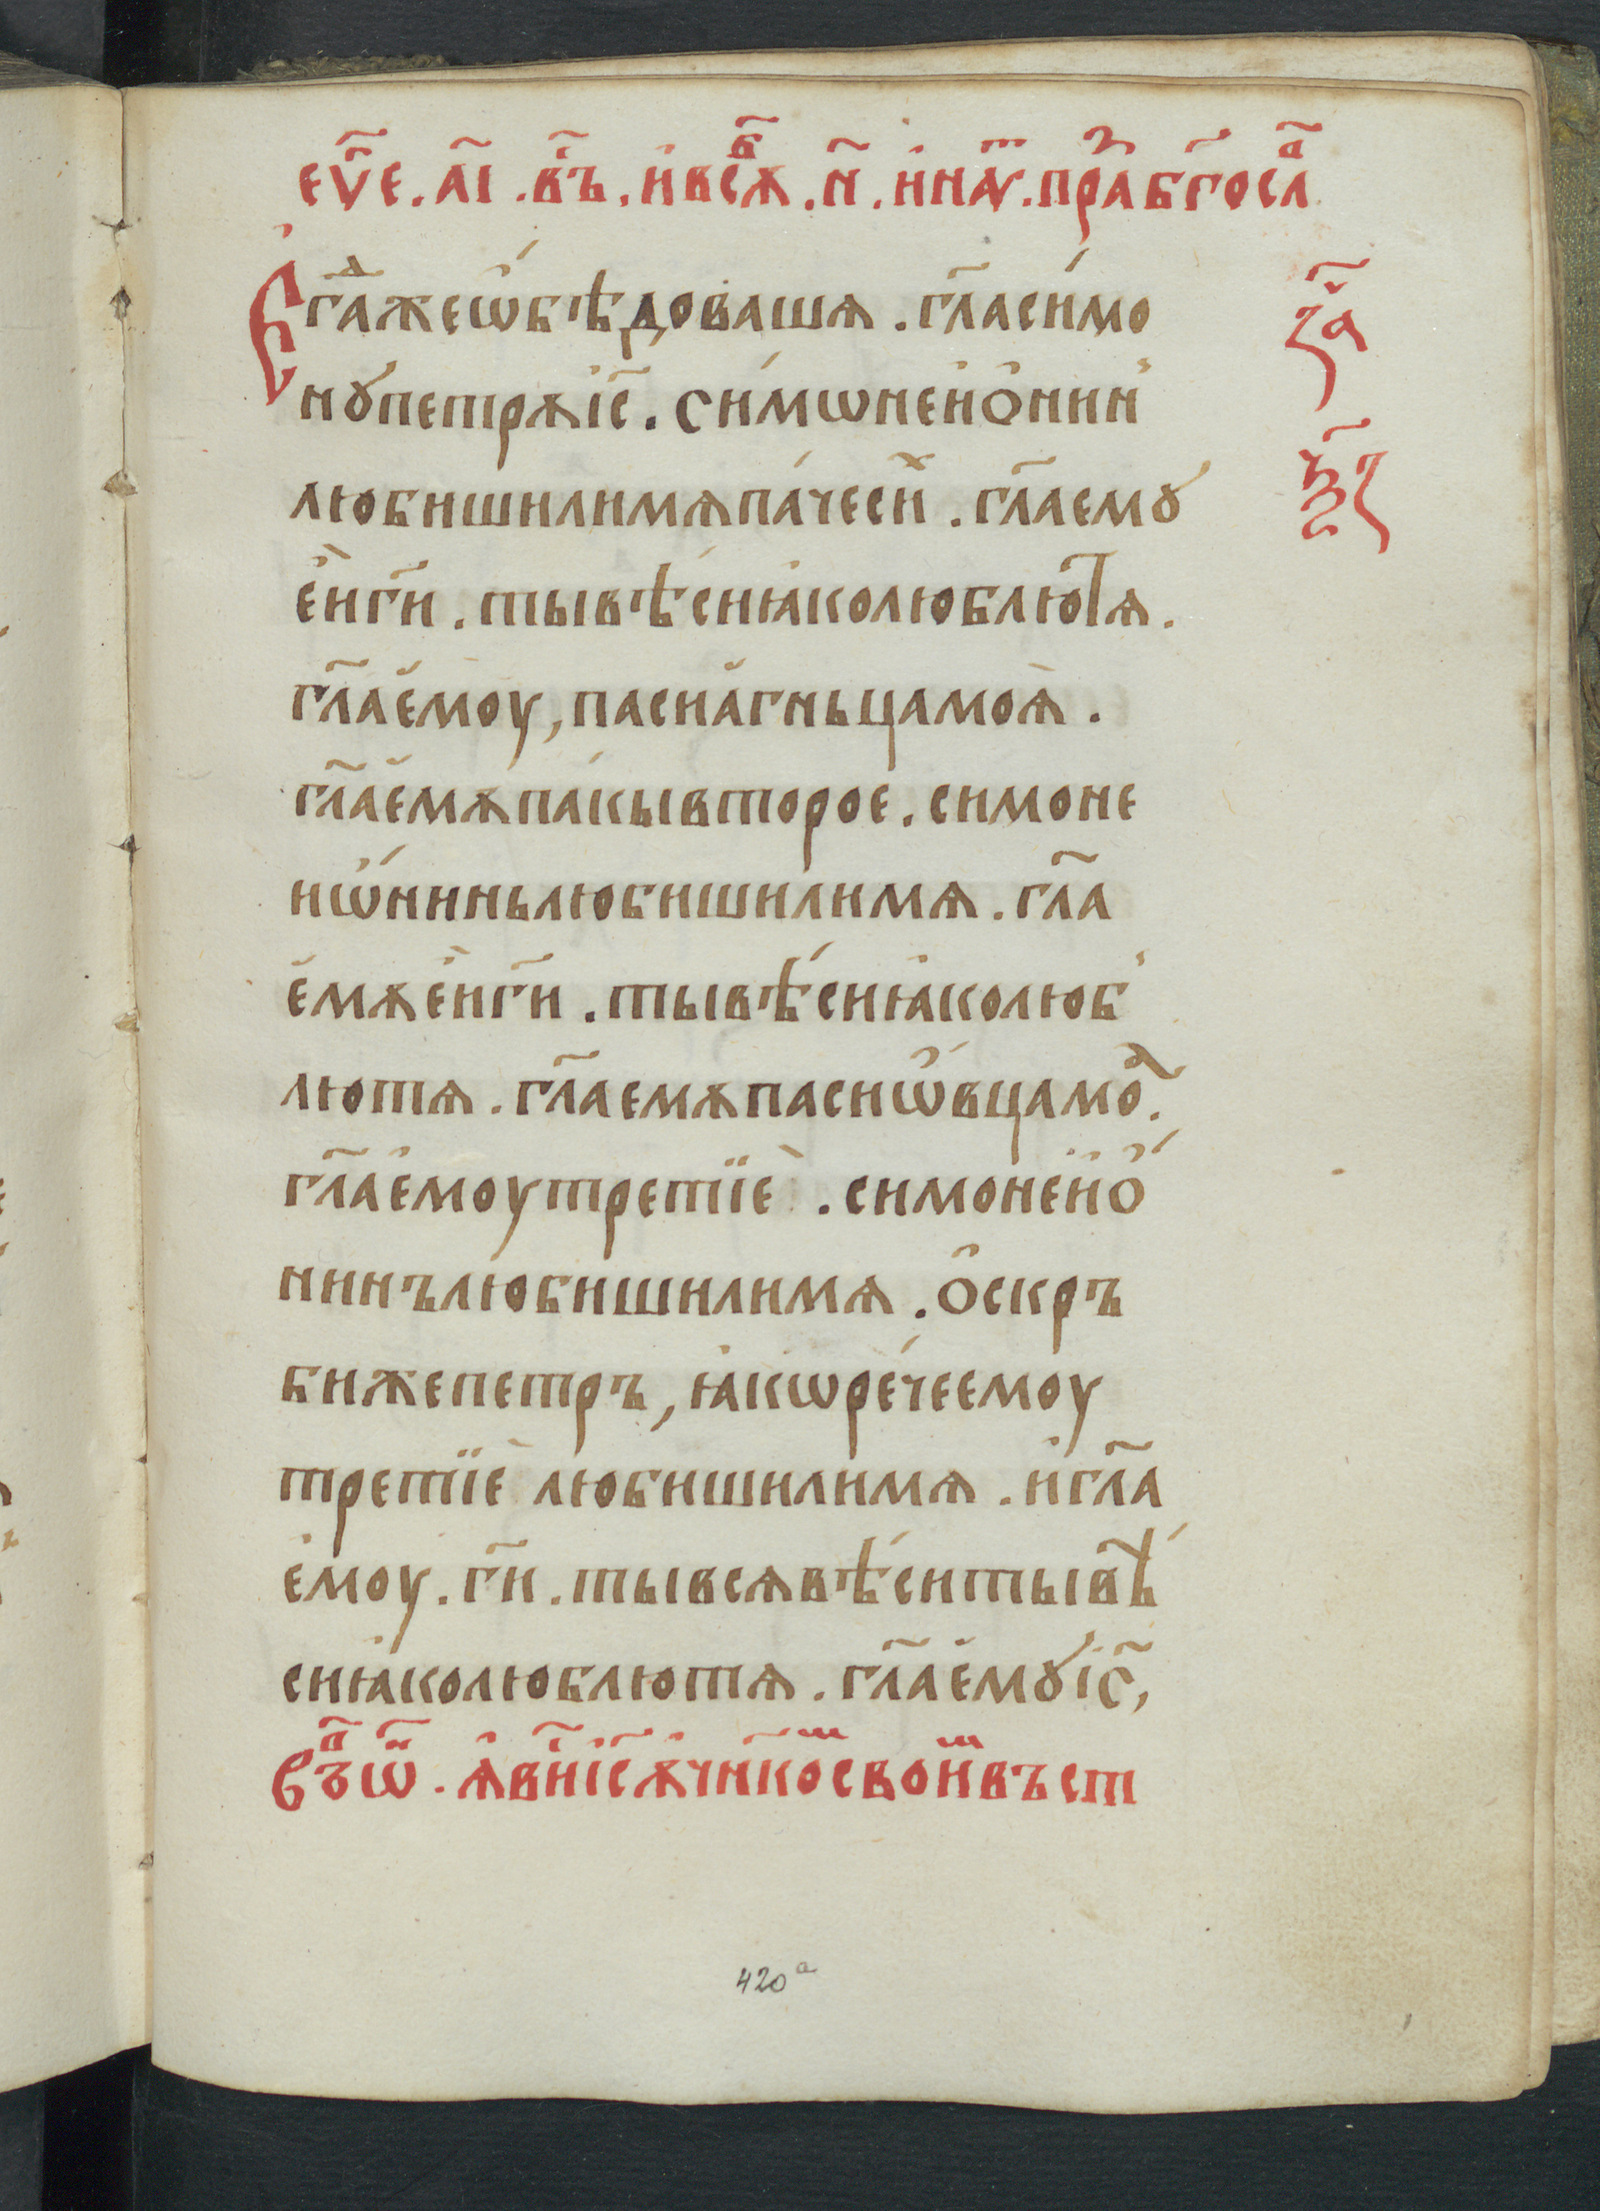 еѵ҃е . а҃і . в҃ъ . и҆всѫ҃б . н҃ . и҆наⷮѵ . прⷣа б҃госла҃
Егⷣа҃жеѡ҆бѣ́доваша . гл҃аси́мо
нꙋпетрѫі҆с҃ . си́мѡнеи҆ѻ҆нин̾
любишилимѧпа́чесиⷯ . гл҃аемꙋ
е҆́иг҃и . тывѣ́сиꙗ҆колюблютѧ .
гл҃ае҆моу , пасиа҆гньцамоѧ̀ .
гл҃ае҆мѫпа́кывторое . симоне
иѡ҆́ниньлюбишилимѧ . гл҃а
е҆мѫе҆́иг҃и . тывѣ́сиꙗ҆колюб̾
лютѧ . гл҃аемѫпасиѡ҆́вцамоⷶ .
гл҃ае҆моутретїѐ . симонеи҆ѻ҆́
нинълюбишилимѧ . ѻ҆скръ
бижепетръ , ꙗ҆кѡре́чеемоу
третїѐ любишилимѧ . и҆гл҃а
е҆моу . г҃и . тывсѧвѣ́ситывѣ́
сиꙗ҆колюблютѧ . гл҃ае҆мꙋі҆с҃ ,
Въⷫ҃ѿ . ꙗ҆ви҃і҆с҃ѫ҆чн҃коⷨсвоиⷨвъст
за҃
ѯ҃з
420ᵃ